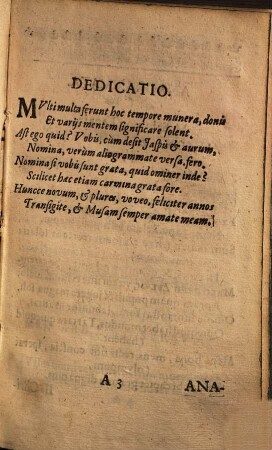 DEDICATIO.
MVlti multa ferunt hoc tempore munera, donis
Et varijs mentem significare solent.
Ast ego quid? Vobis, cùm desit Jaspis & aurum,
Nomina, verùm aliogrammate versa, fero.
Nomina si vobis sunt grata, quid ominer inde?
Scilicet hæc etiam carmina grata fore.
Huncce novum, & plures, voveo, feliciter annos
Transigite, & Musam semper amate meam.
A 3 ANA-